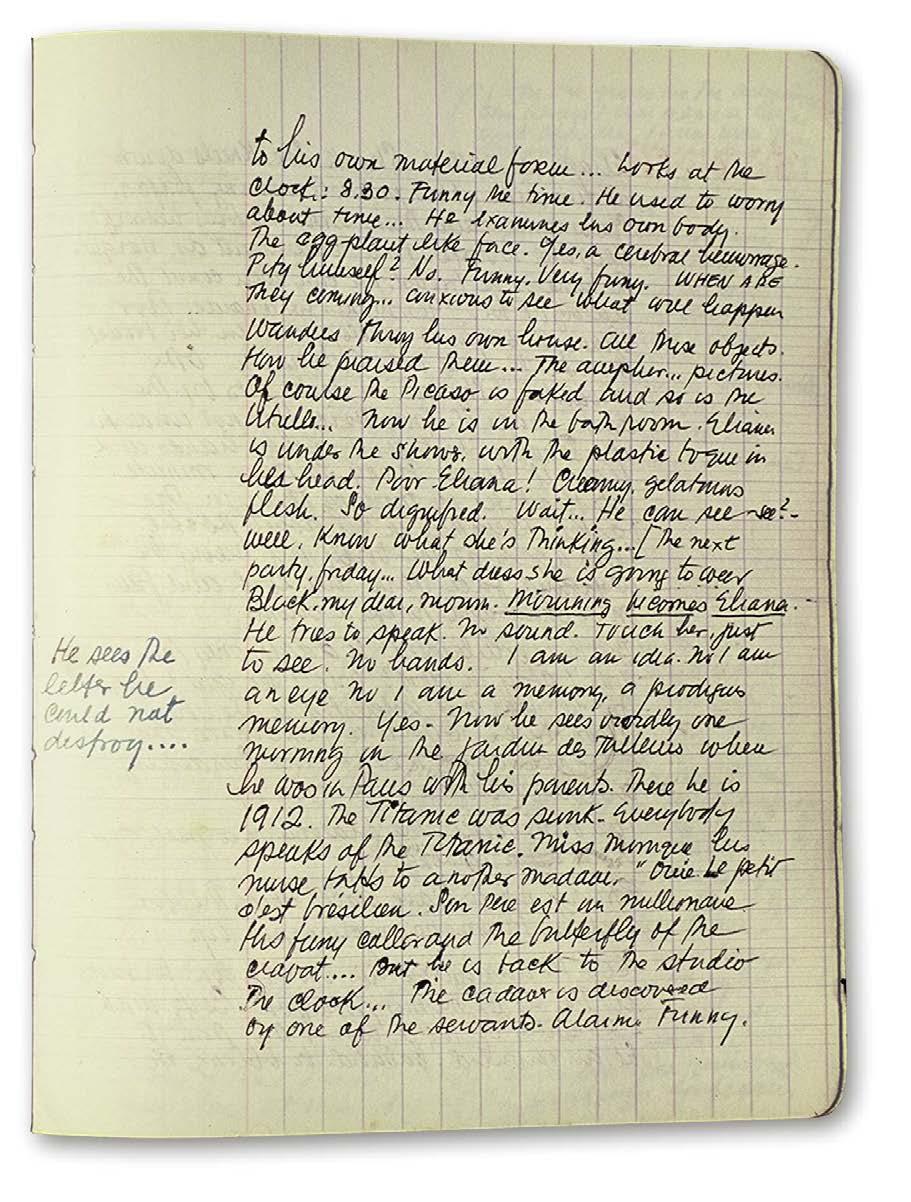 to his own material form... Looks at the
clock: 8,30. Funny the time. He used to worry
about time... He examines his own body.
The egg plant like face. Yes, a cerebral hemorrage.
Pity himself? No. Funny. Very funy. WHEN ARE
They coming... anxious to see what will happen
Wandles throy his own house. All those objects.
How he praised them... The pictures.
Of course the Picaso is faked and so is the
Utrillo... Now he is in the bath room. Eliana
is under the shower, with the plastic toque in
her head. Poor Eliana! Creamy, gelatinous
flesh. So dignified. Wait... He can see -see?-
well, Know what she's thinking... [The next
party, friday... What dress she is going to wear
Black, my dear, mourn. Mourning becomes Eliana.
He tries to speak. No sound. Touch her, just
to see. No hands. I am an idea. No I am
an eye no I am a memory, a prodigius
memory. Yes. Now he sees vividly one
morning in the Jardin des Tulleries when
he was in Paris with his parents. There he is
1912. The Titanic was sunk. Everybody
speaks of the Titanic. Miss Monique his
nurse talks to another madame. "Ouie Le petit
c'est brésilien. Son Père est un millionaire
His funy collor and the butterfly of the
cravat.... But he is back to the studio
The clock... The cadaver is discovered
by one of the servants. Alarm. Funny.
He sees the
letter he
could not
destroy....